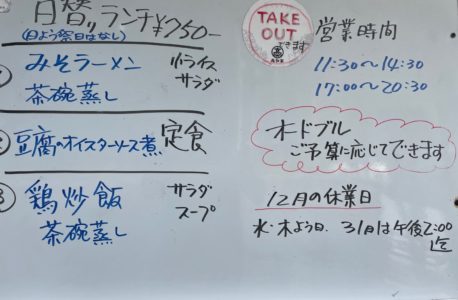 日替りランチ¥750-
(日よう祭日はなし)
みそラーメン 小ライス
茶碗蒸し サラダ
② 豆腐のオイスターソース煮 定食
③ 鶏炒飯 サラダ
茶碗蒸し スープ
TAKE
OUT
できます
営業時間
11:30〜14:30
17:00〜20:30
オードブル
ご予算に応じてできます
12月の休業日
水・木よう日、31日は午後2:00
迄